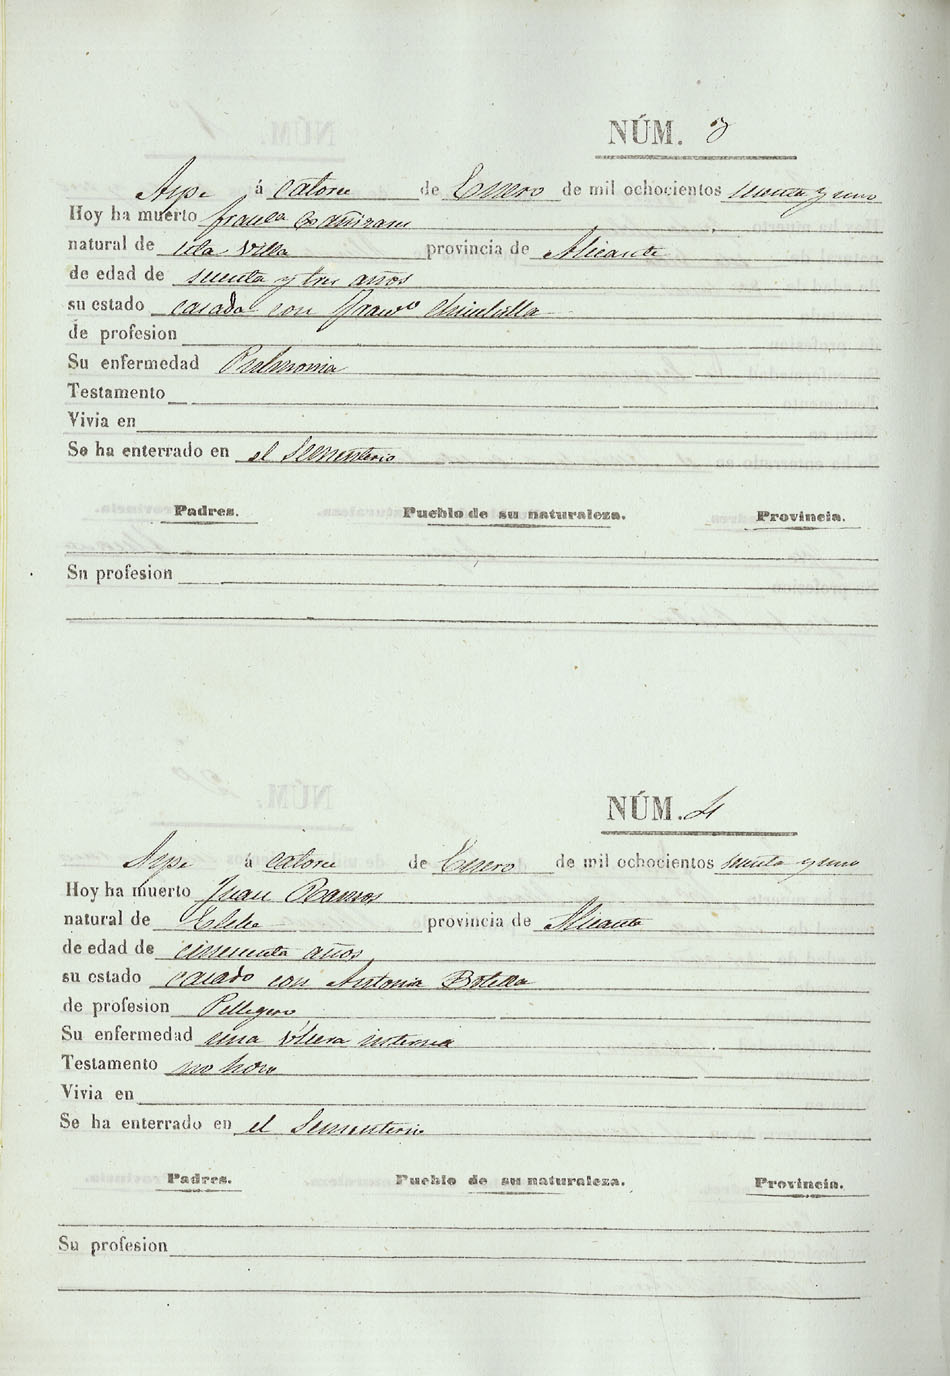 NÚM. 3
Aspe á catorce de Enero de mil ochocientos sesenta y uno
Hoy ha muerto Franca Cañizares
natural de esta Villa provincia de Alicante
de edad de sesenta y tres años
su estado casada con Franco
de profesion
Su enfermedad Pulmonia
Testamento
Vivia en
Se ha enterrado en el Sementerio
Padres. Pueblo de su naturaleza. Provincia.
Su profesion
NÚM. 4
Aspe á catorce de Enero de mil ochocientos sesenta y uno
Hoy ha muerto Juan Ramos
natural de Elche provincia de Alicante
de edad de cincuenta años
su estado casado con Antonia Botella
de profesion Pellegero
Su enfermedad una ulcera interna
Testamento no hizo
Vivia en
Se ha enterrado en el Sementerio
Padres. Pueblo de su naturaleza. Provincia.
Su profesion